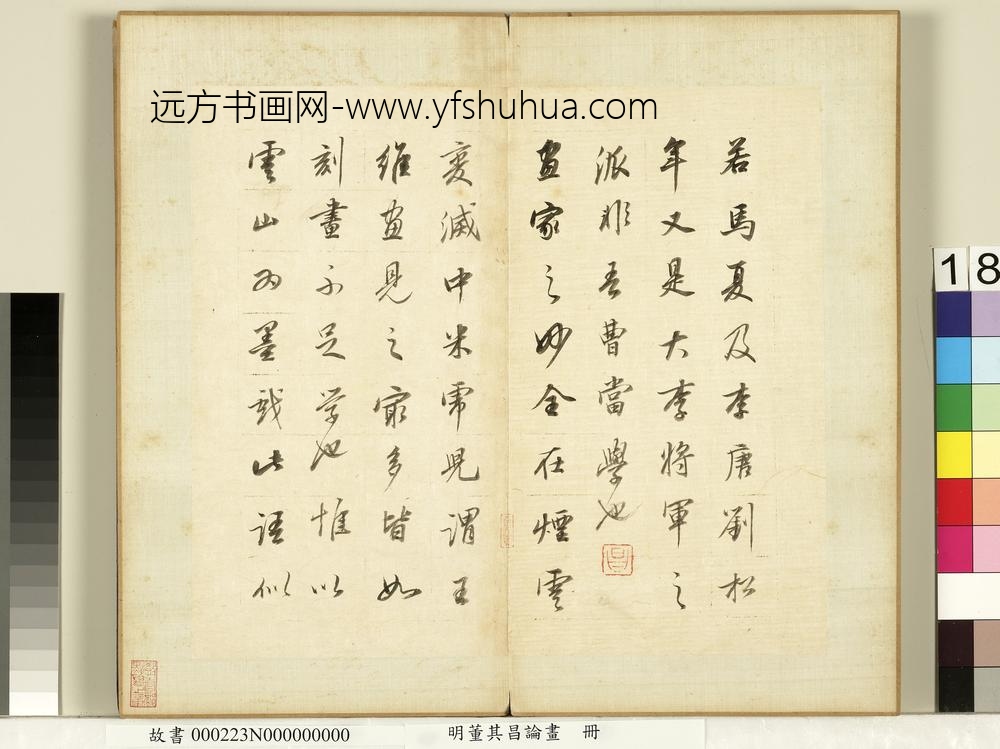 远方书画网-www.yfshuhua.com
若馬夏及李唐劉松
年又是大李將軍之
派非吾曹當學也
畫家之妙全在煙雲
變滅中米虎兒謂王
維畫見之最多皆如
刻畫不足學也惟以
雲山為墨戲此語似
18
故書 000223N000000000
明董其昌論畫 冊